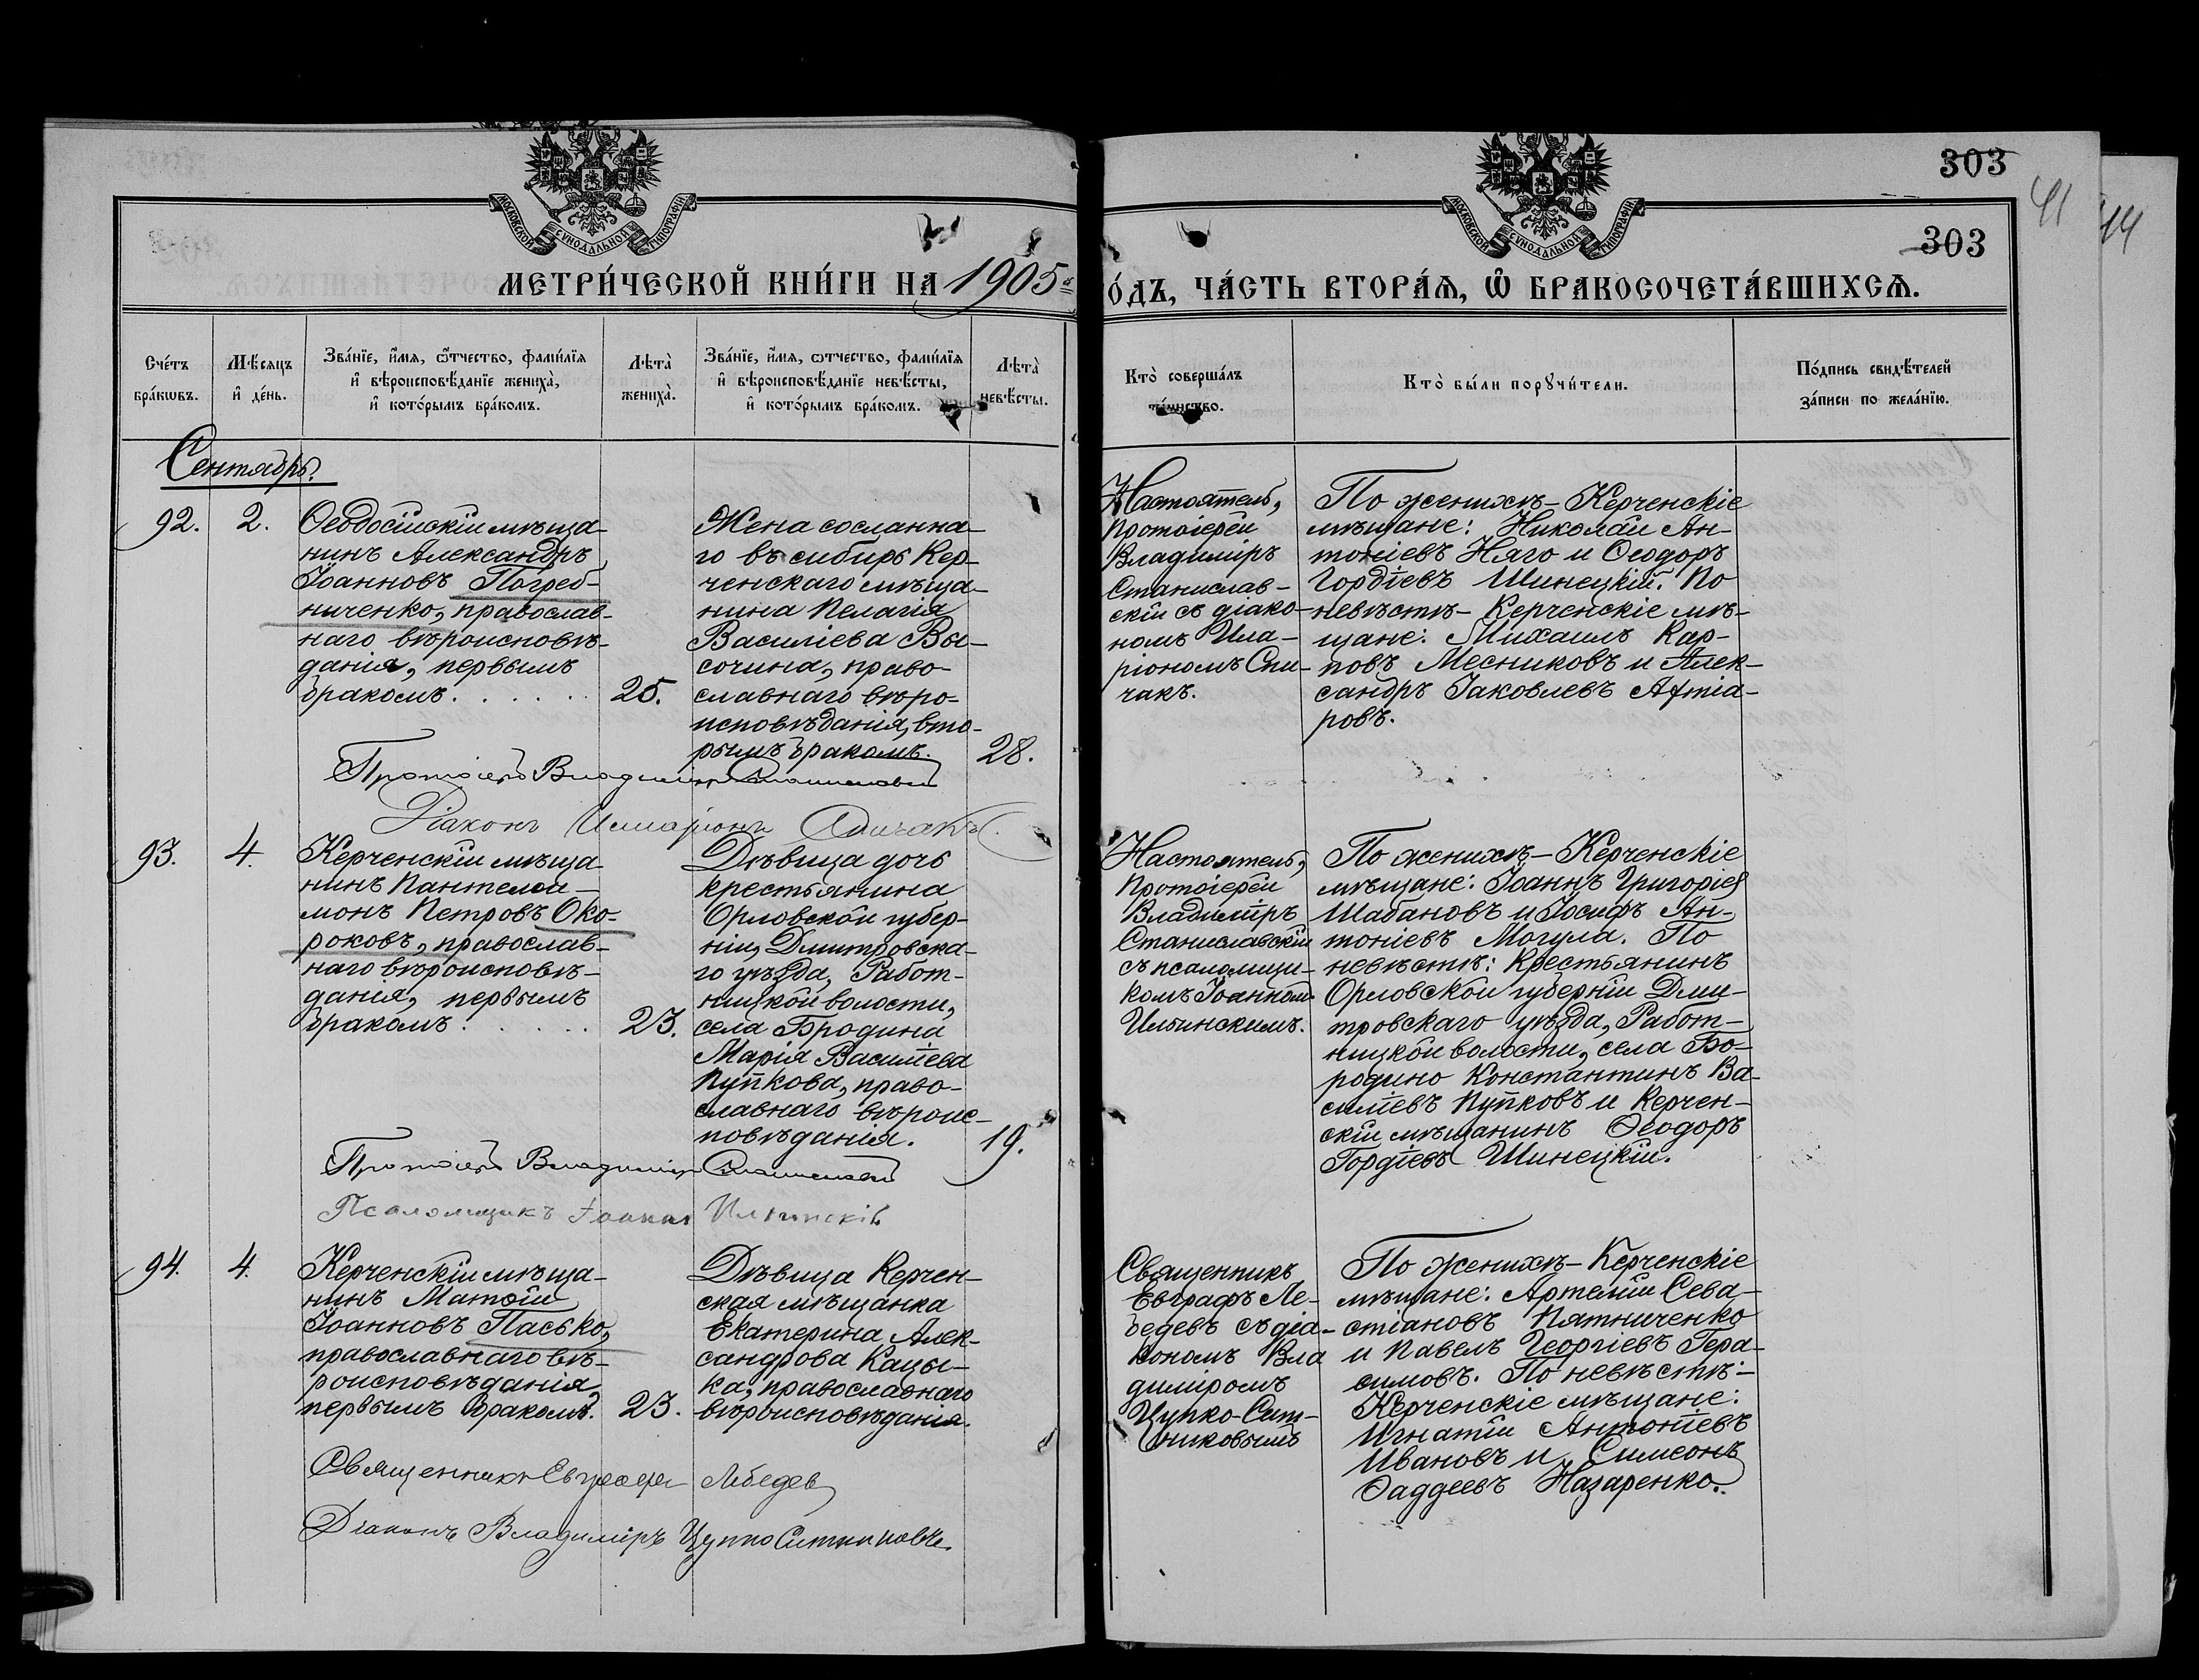 303
41
44
303
МОСКОВСКОЙ СѴНОДАЛЬНОЙ ТИПОГРАФІИ
МОСКОВСКОЙ СѴНОДАЛЬНОЙ ТИПОГРАФІИ
МЕТРИ́ЧЕСКОЙ КНИ́ГИ НА 1905 й
О́ДЪ, ЧА́СТЬ ВТОРА́Ѧ, Ѽ БРАКОСОЧЕТА́ВШИХСѦ.
Сче́тъ
бра́кѡвъ.
Мѣ́сяцъ
и҆ де́нь.
Зва́нїе, и҆́мѧ, ѻ҆́тчество, фами́лїѧ
и҆ вѣроисповѣ́данїе жениха̀,
и҆ кото́рымъ бра́комъ.
Лѣта̀
жениха̀.
Зва́нїе, и҆́мѧ, ѻтчество, фами́лїѧ
и҆ вѣроисповѣ́данїе невѣ́сты,
и҆ кото́рымъ бра́комъ.
Лѣта̀
невѣ́сты.
Кто̀ соверша́лъ
та́инство.
Кто̀ бы́ли порꙋчи́тели.
По́дпись свидѣ́телей
за́писи по жела́нїю.
Сентябрь.
92.
2.
Ѳеодосійскій мѣща-
нинъ Александръ
Іоанновъ Погреб-
ниченко, православ-
наго вѣроисповѣ-
данія, первымъ
бракомъ. . . . . .
25.
Жена сосланна-
го въ сибирь Кер-
ченскаго мѣща-
нина Пелагія
Василіева Вы-
сочина, право-
славнаго вѣро-
исповѣданія, вто-
рымъ бракомъ.
28.
Настоятель,
Протоіерей
Владиміръ
Станислав-
скій съ діако-
номъ Ила-
ріономъ Спи-
чакъ.
По женихѣ - Керченскіе
мѣщане: Николай Ан-
тоніевъ Няго и Ѳеодоръ
Гордіевъ Шинецкій. По
невѣстѣ - Керченскіе мѣ-
щане: Михаилъ Кар-
повъ Месниковъ и Алек-
сандръ Іаковлевъ Афтіа-
ровъ.
Протоіерей Владиміръ Станиславскій
Діаконъ Илларіонъ Спичакъ.
93.
4.
Керченскій мѣща-
нинъ Пантелеи-
монъ Петровъ Око-
роковъ, православ-
наго вѣроисповѣ-
данія, первымъ
бракомъ. . . . . .
23.
Дѣвица дочь
крестьянина
Орловской губер-
ніи, Дмитровска-
го уѣзда, Работ-
ницкой волости,
села Бродина
Марія Василіева
Пупкова, право-
славнаго вѣроис-
повѣданія.
19.
Настоятель,
Протоіерей
Владиміръ
Станиславскій
съ псаломщи-
комъ Іоанномъ
Ильинскимъ.
По женихѣ - Керченскіе
мѣщане: Іоаннъ Григоріев
Шабановъ и Іосифъ Ан-
тоніевъ Могула. По
невѣстѣ: Крестьянинъ
Орловской губерніи Дми-
тровскаго уѣзда, Работ-
ницкой волости, села Бо-
родино Константинъ Ва-
силіевъ Пупковъ и Керчен-
скій мѣщанинъ Ѳеодоръ
Гордіевъ Шинецкій.
Протоіерей Владиміръ Станиславскій
Псаломщикъ Іоаннъ Ильинскій
94.
4.
Керченскій мѣща-
нинъ Матѳій
Іоанновъ Пасько,
православнаго вѣ-
роисповѣданія,
первымъ бракомъ.
23.
Дѣвица Керчен-
ская мѣщанка
Екатерина Алек-
сандрова Кацы-
ка, православнаго
вѣроисповѣданія.
Священникъ
Евграфъ Ле-
бедевъ съ діа-
кономъ Вла
диміромъ
Цупко-Сит-
никовымъ
По женихѣ - Керченскіе
мѣщане: Артемій Сева-
стіановъ Пятниченко
и Павелъ Георгіевъ Гера-
симовъ. По невѣстѣ:-
Керченскіе мѣщане:
Игнатій Антоніевъ
Ивановъ и Симеонъ
Ѳаддеевъ Назаренко.
Священникъ Евграфъ Лебедев
Діаконъ Владиміръ Цупко Ситниковъ.